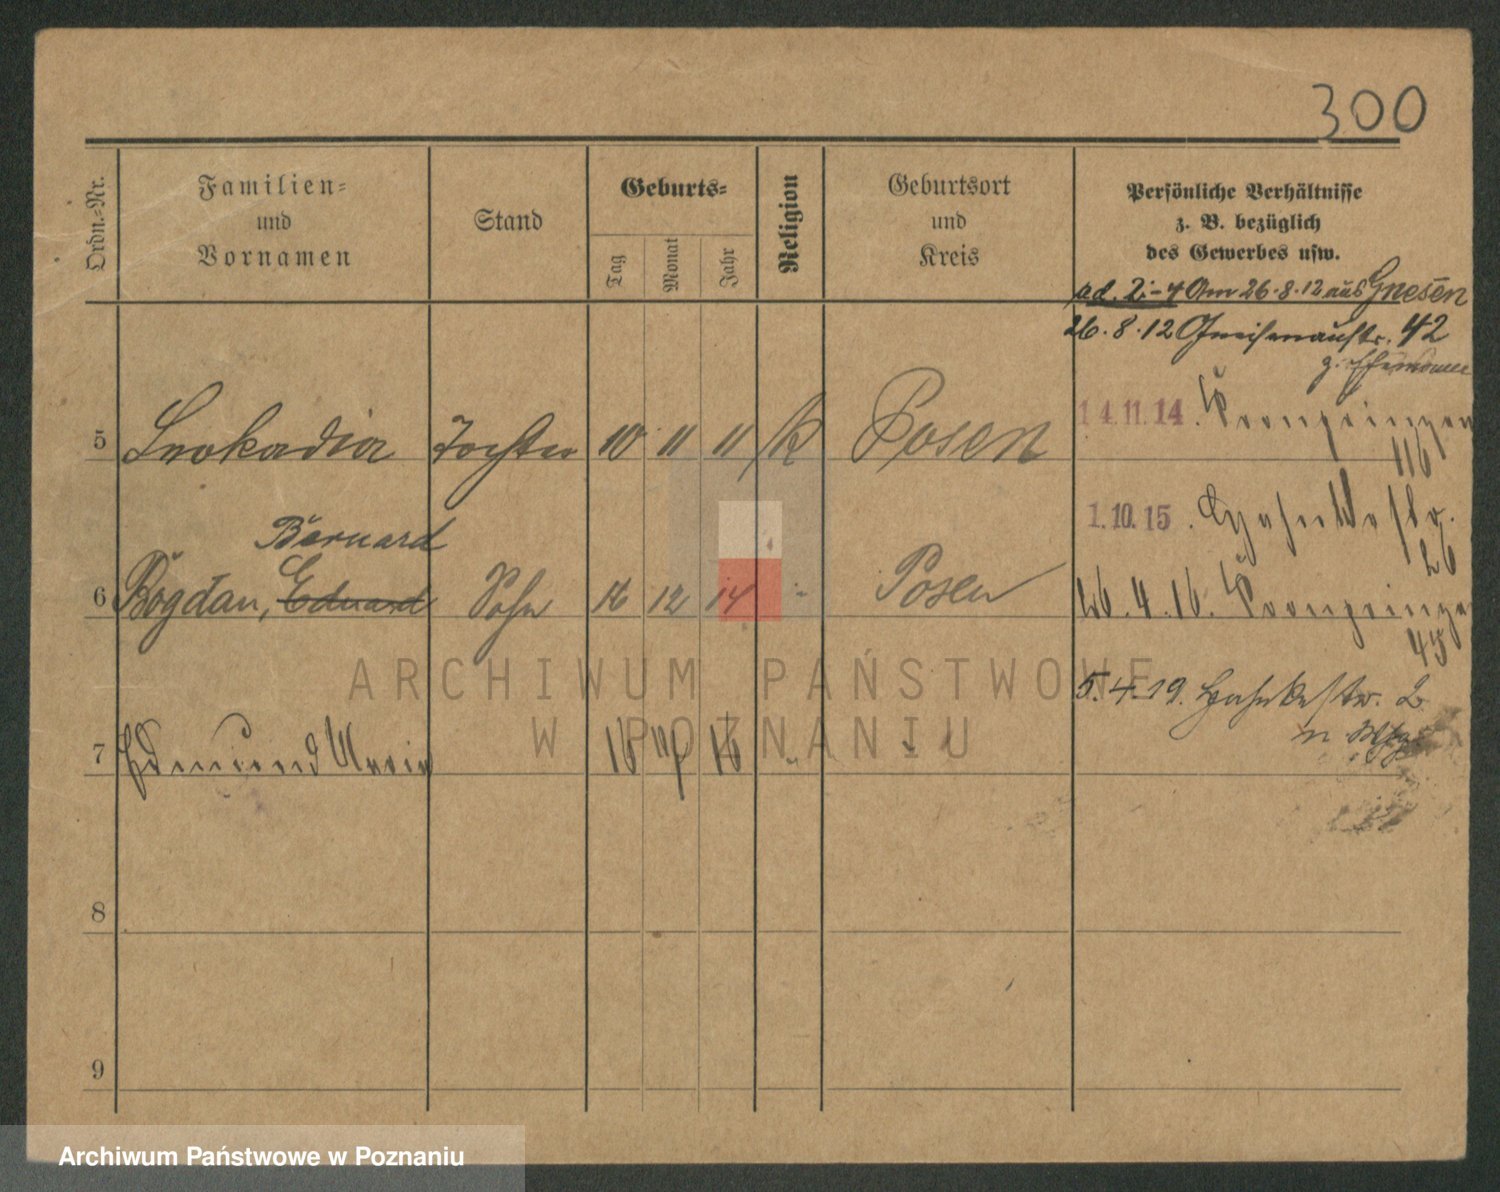 300
Ordn.-Nr.
Familien-
und
Vornamen
Stand
Geburts-
Tag
Monat
Jahr
Religion
Geburtsort
und
Kreis
Persönliche Verhältnisse
z. B. bezüglich
des Gewerbes usw.
ad. 2-4 Am 26.8.12 aus Gnesen
26.8.12 Gneisenaustr. 42
14.11.14. Kronprinzen
116
5 Leokadia Tochter 10 11 11 k Posen
1.10.15.
26
Bernard
6 Bogdan, Eduard Sohn 16 12 14 " Posen
26.4.16. Kronprinzen
45
ARCHIWUM PAŃSTWOWE
W POZNANIU
5.4.19. 2
7 Edmund 16 16 "
8
9
Archiwum Państwowe w Poznaniu